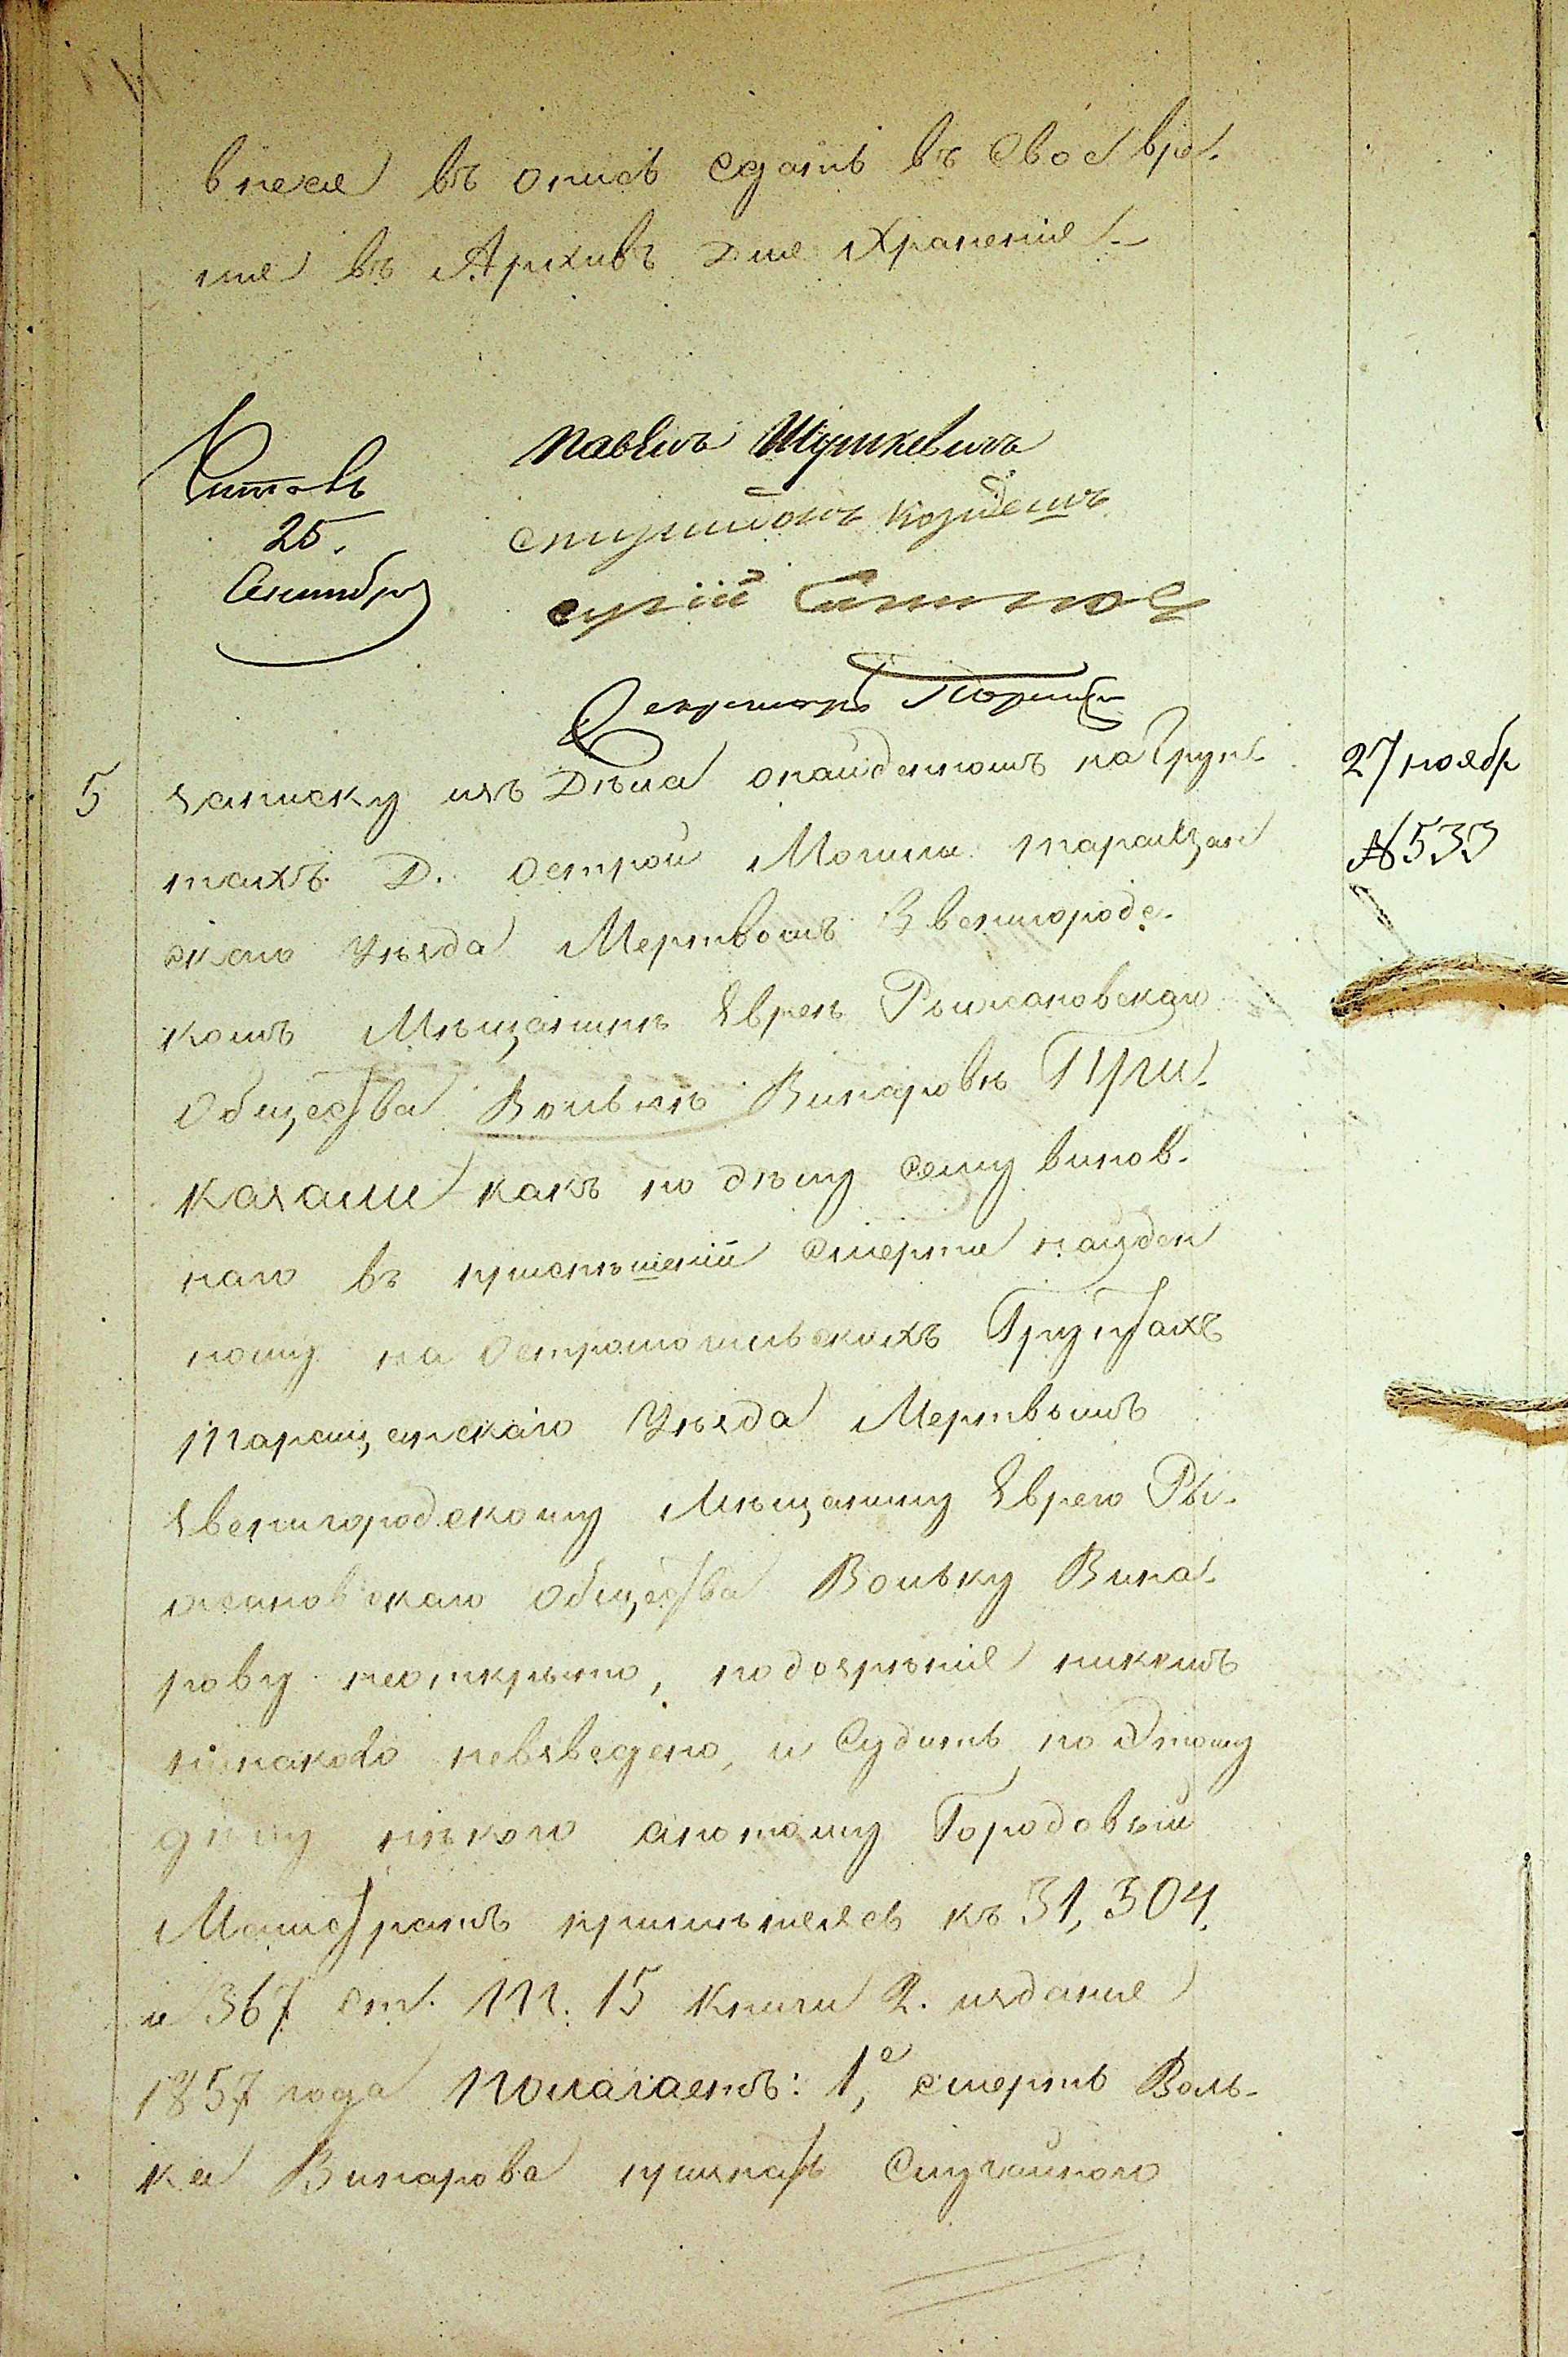 внеся въ опись сдать въ свое вре-
мя въ Архивъ для храненія.
Читалъ
25.
Сентября
Павелъ Шушкевичъ
Секретарь
5
записку изъ Дѣла онайденномъ на Грун-
тахъ Д. Острой Могили Таращан
скаго Уѣзда Мертвомъ Звенигородс-
комъ Мѣщанинѣ Евреѣ Рыжановскаго
Общества Волькѣ Винаровѣ При-
казали какъ по дѣлу сему винов-
наго въ причиненіи смерти найден
ному на Остромогильскихъ Грунтахъ
Таращанскаго Уѣзда Мертвымъ
Звенигородскому Мѣщанину Еврею Ры-
жановскаго Общества Вольку Вина-
рову неоткрыто, подозрѣнія никемъ
никакого невзведено, и Судить по этому
дѣлу нѣкого апотому Городовый
Магистратъ примѣняясь къ 31, 304,
и 367 ст. Т. 15 Книги 2. изданія
1857 года Полагаетъ: 1е, смерть Воль-
ка Винарова признать Случайною
27 ноябр
№ 533